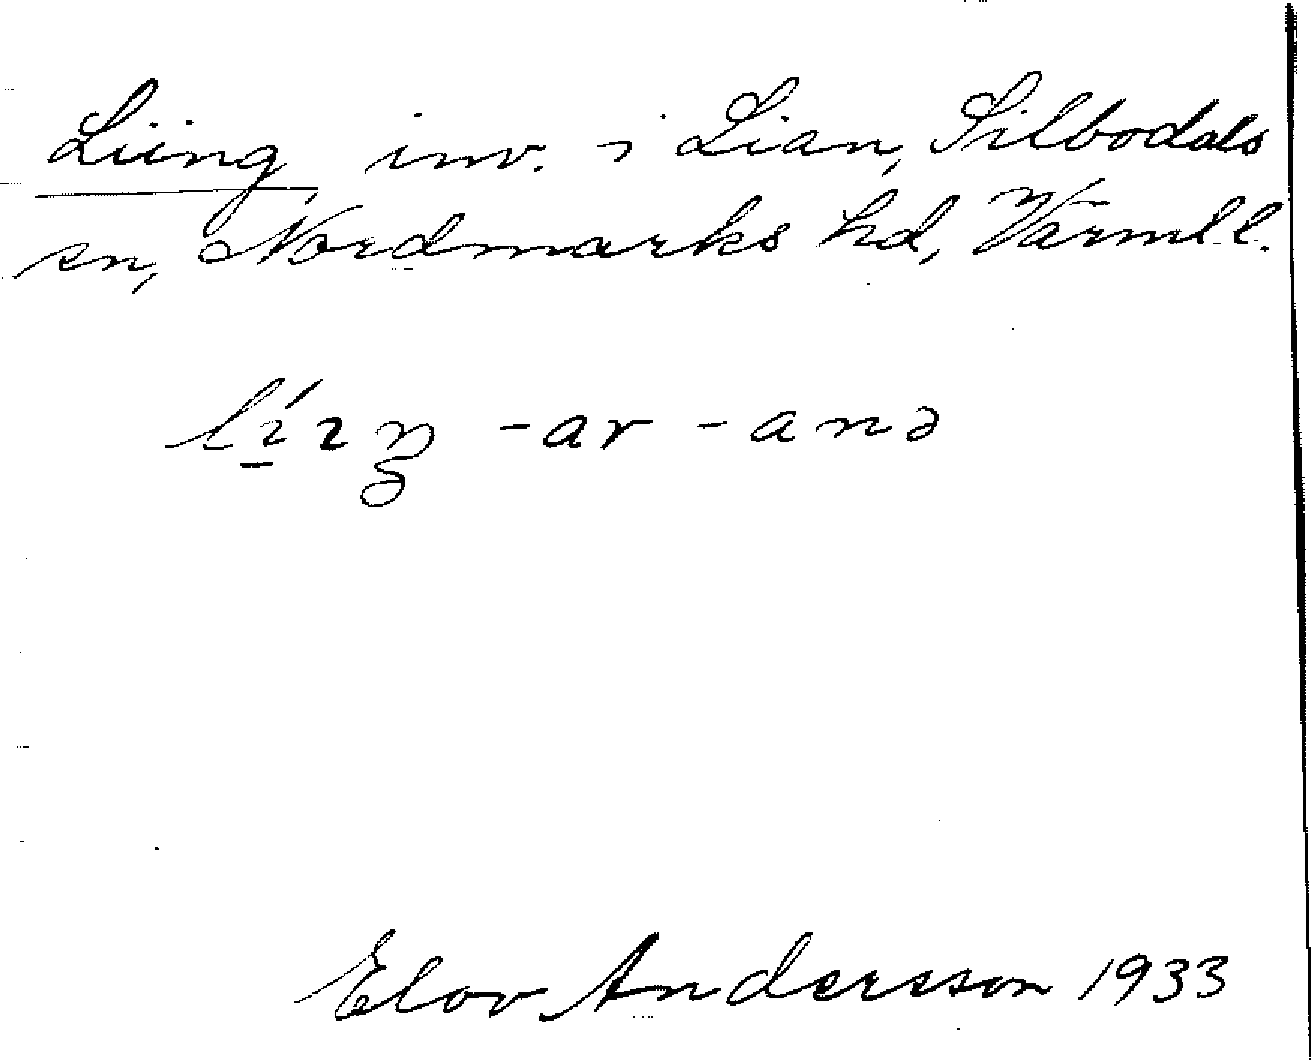 Liing inv. i Lian, Silbodals
sn, Nordmarks hd, Värml l.
lí̱ıŋ -ar -anə
Elov Andersson 1933